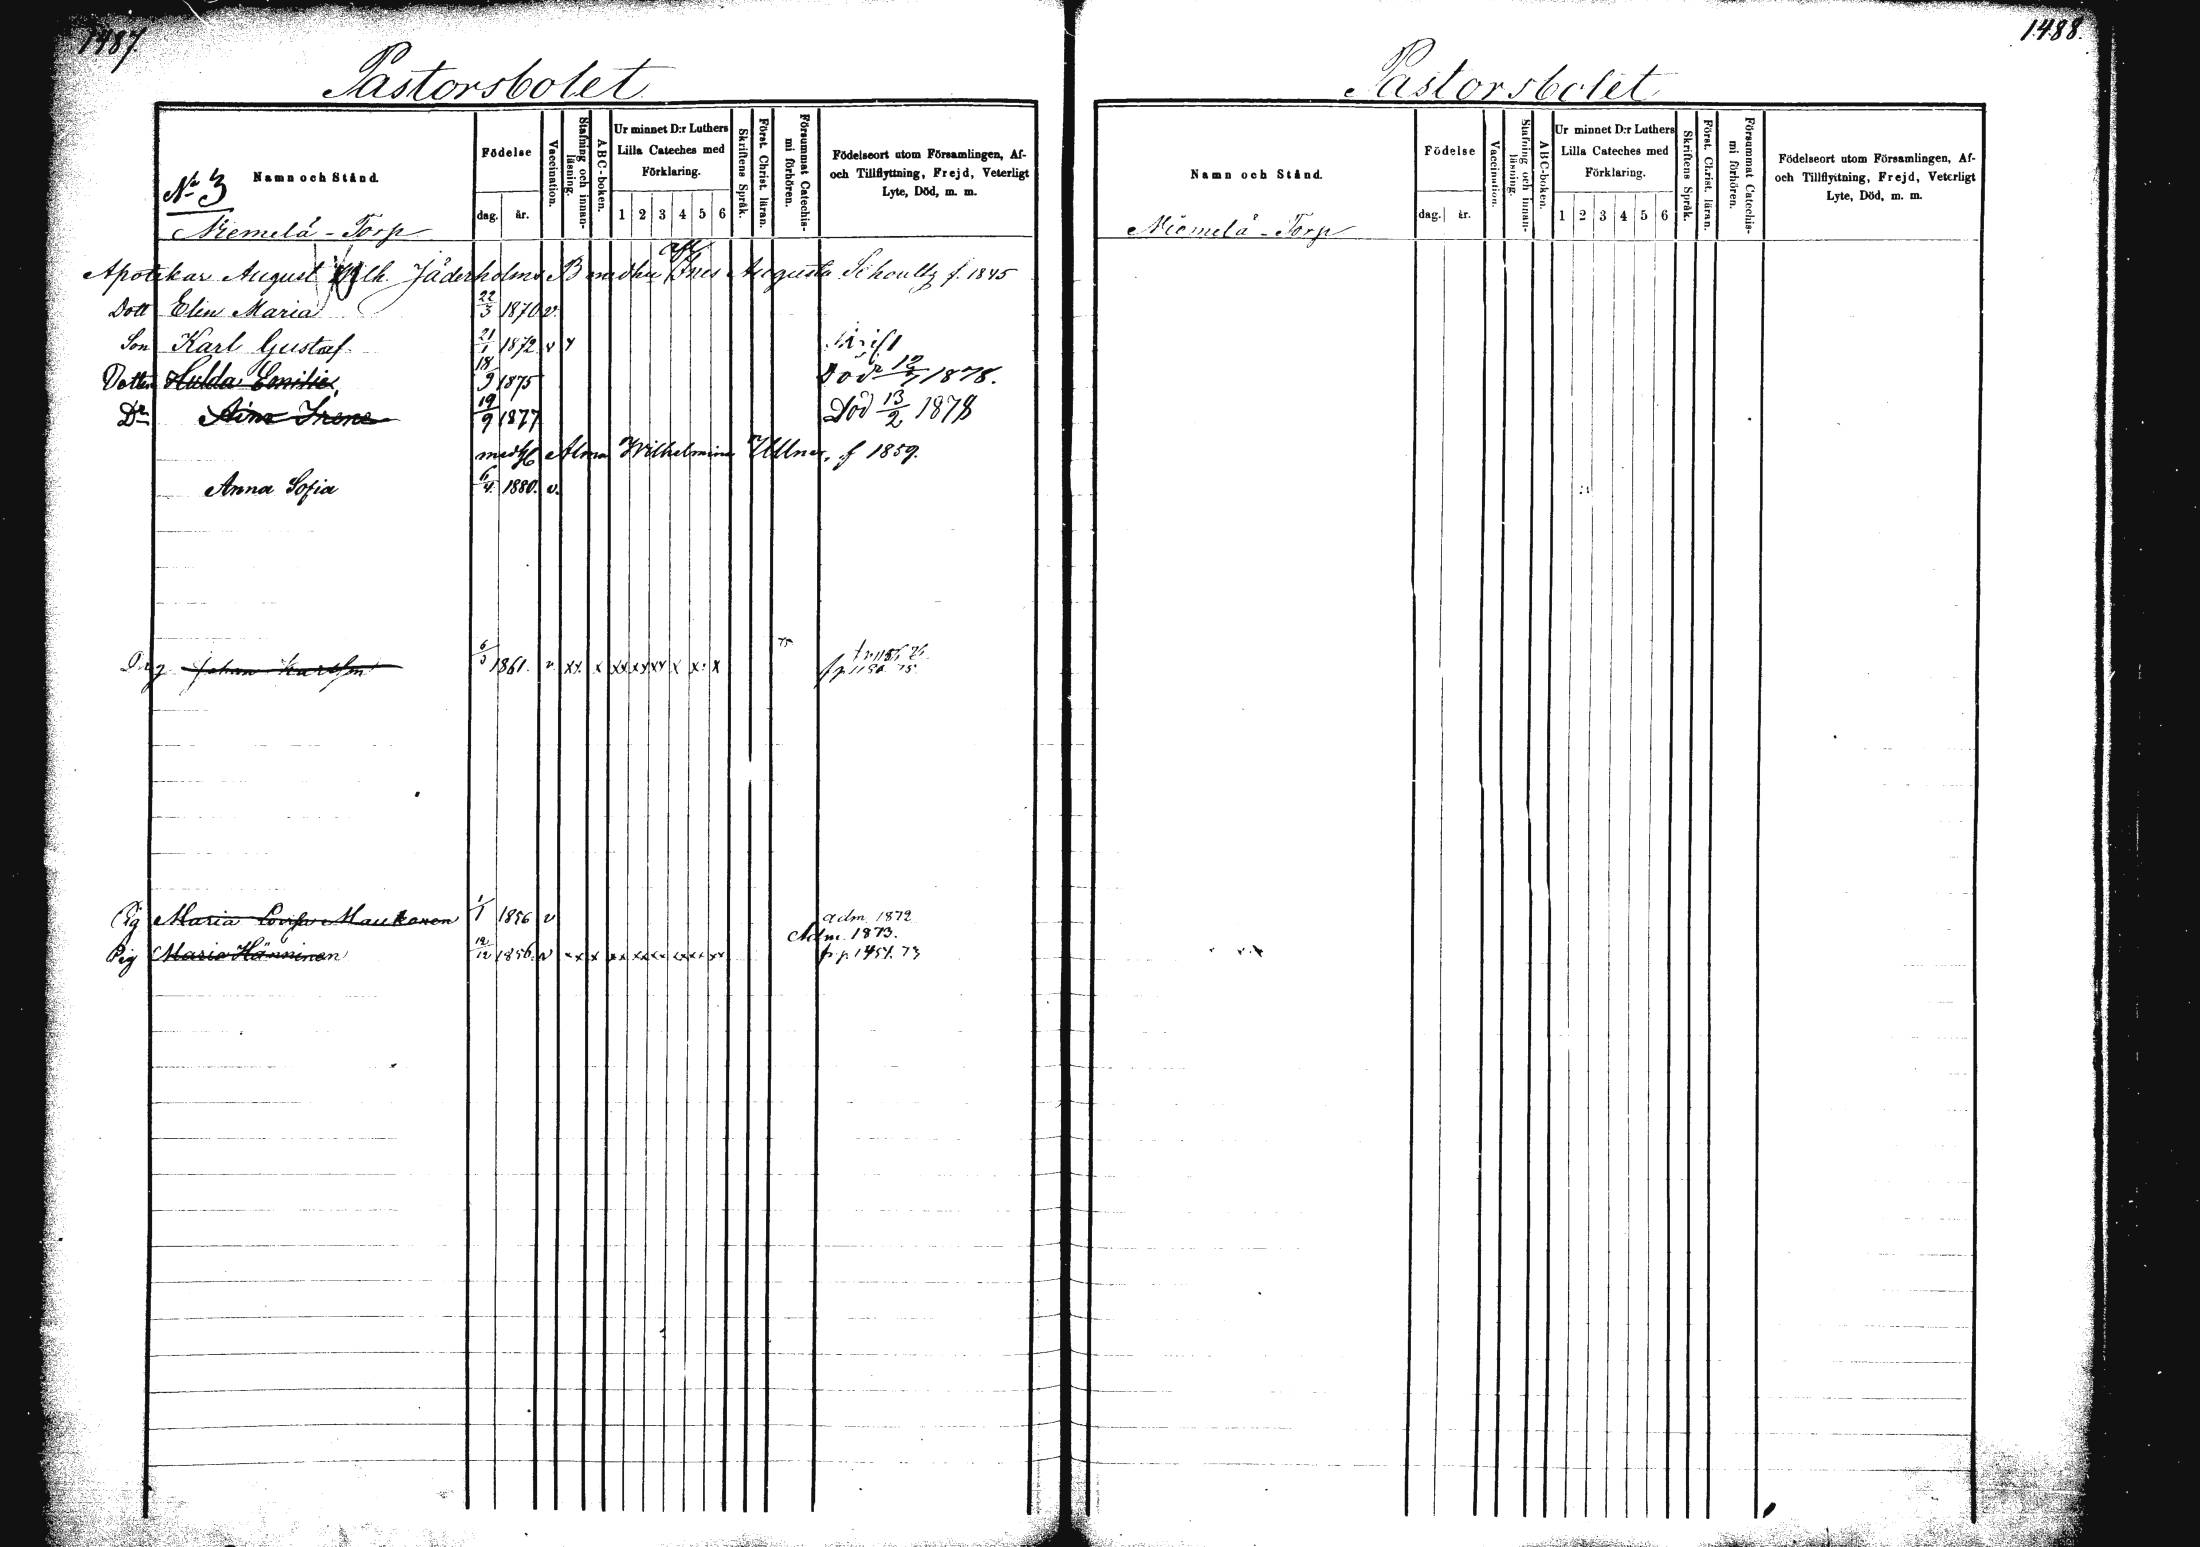 1487.
Pastorsbolet
Namn och Stånd.
Födelse
dag.
år.
Vaccination.
Stafning och innan-
läsning.
ABC-boken.
Ur minnet D:r Luthers
Lilla Cateches med
Förklaring.
1 2 3 4 5 6
Skriftens Språk.
Först. Christ. läran.
Försummat Catechis-
mi förhören.
Födelseort utom Församlingen, Af-
och Tillflyttning, Frejd, Veterligt
Lyte, Död, m. m.
No 3
Niemelä - Torp
Apotekar August Wilh. Jäderholms Barn Ines Augusta Schoultz f. 1845
Dott Elin Maria 22/3 1870 v.
Son Karl Gustaf. 21/1 1872 v
Dotter Hulda Emilie 18/9 1875 Död 1878.
Do Aina Irene 19/9 1877 Död 13/2 1878
Alma Wilhelmina Ullner, f 1859.
Anna Sofia 6/4 1880. v.
Johan Karlsson 1861. v xx x xx xx xx x x x 75
Pig Maria Lovisa Maukonen 1/1 1856 v adm 1872
Adm. 1873.
Pig Maria Hänninen 12/12 1856. v xx x xx xx xx xx xx xx fr p 1451. 73
1488.
Pastorsbolet
Namn och Stånd.
Födelse
dag. år.
Vaccination.
Stafning och innan-
läsning.
ABC-boken.
Ur minnet D:r Luthers
Lilla Cateches med
Förklaring.
1 2 3 4 5 6
Skriftens Språk.
Först. Christ. läran.
Försummat Catechis-
mi förhören.
Födelseort utom Församlingen, Af-
och Tillflyttning, Frejd, Veterligt
Lyte, Död, m. m.
Niemelä - Torp